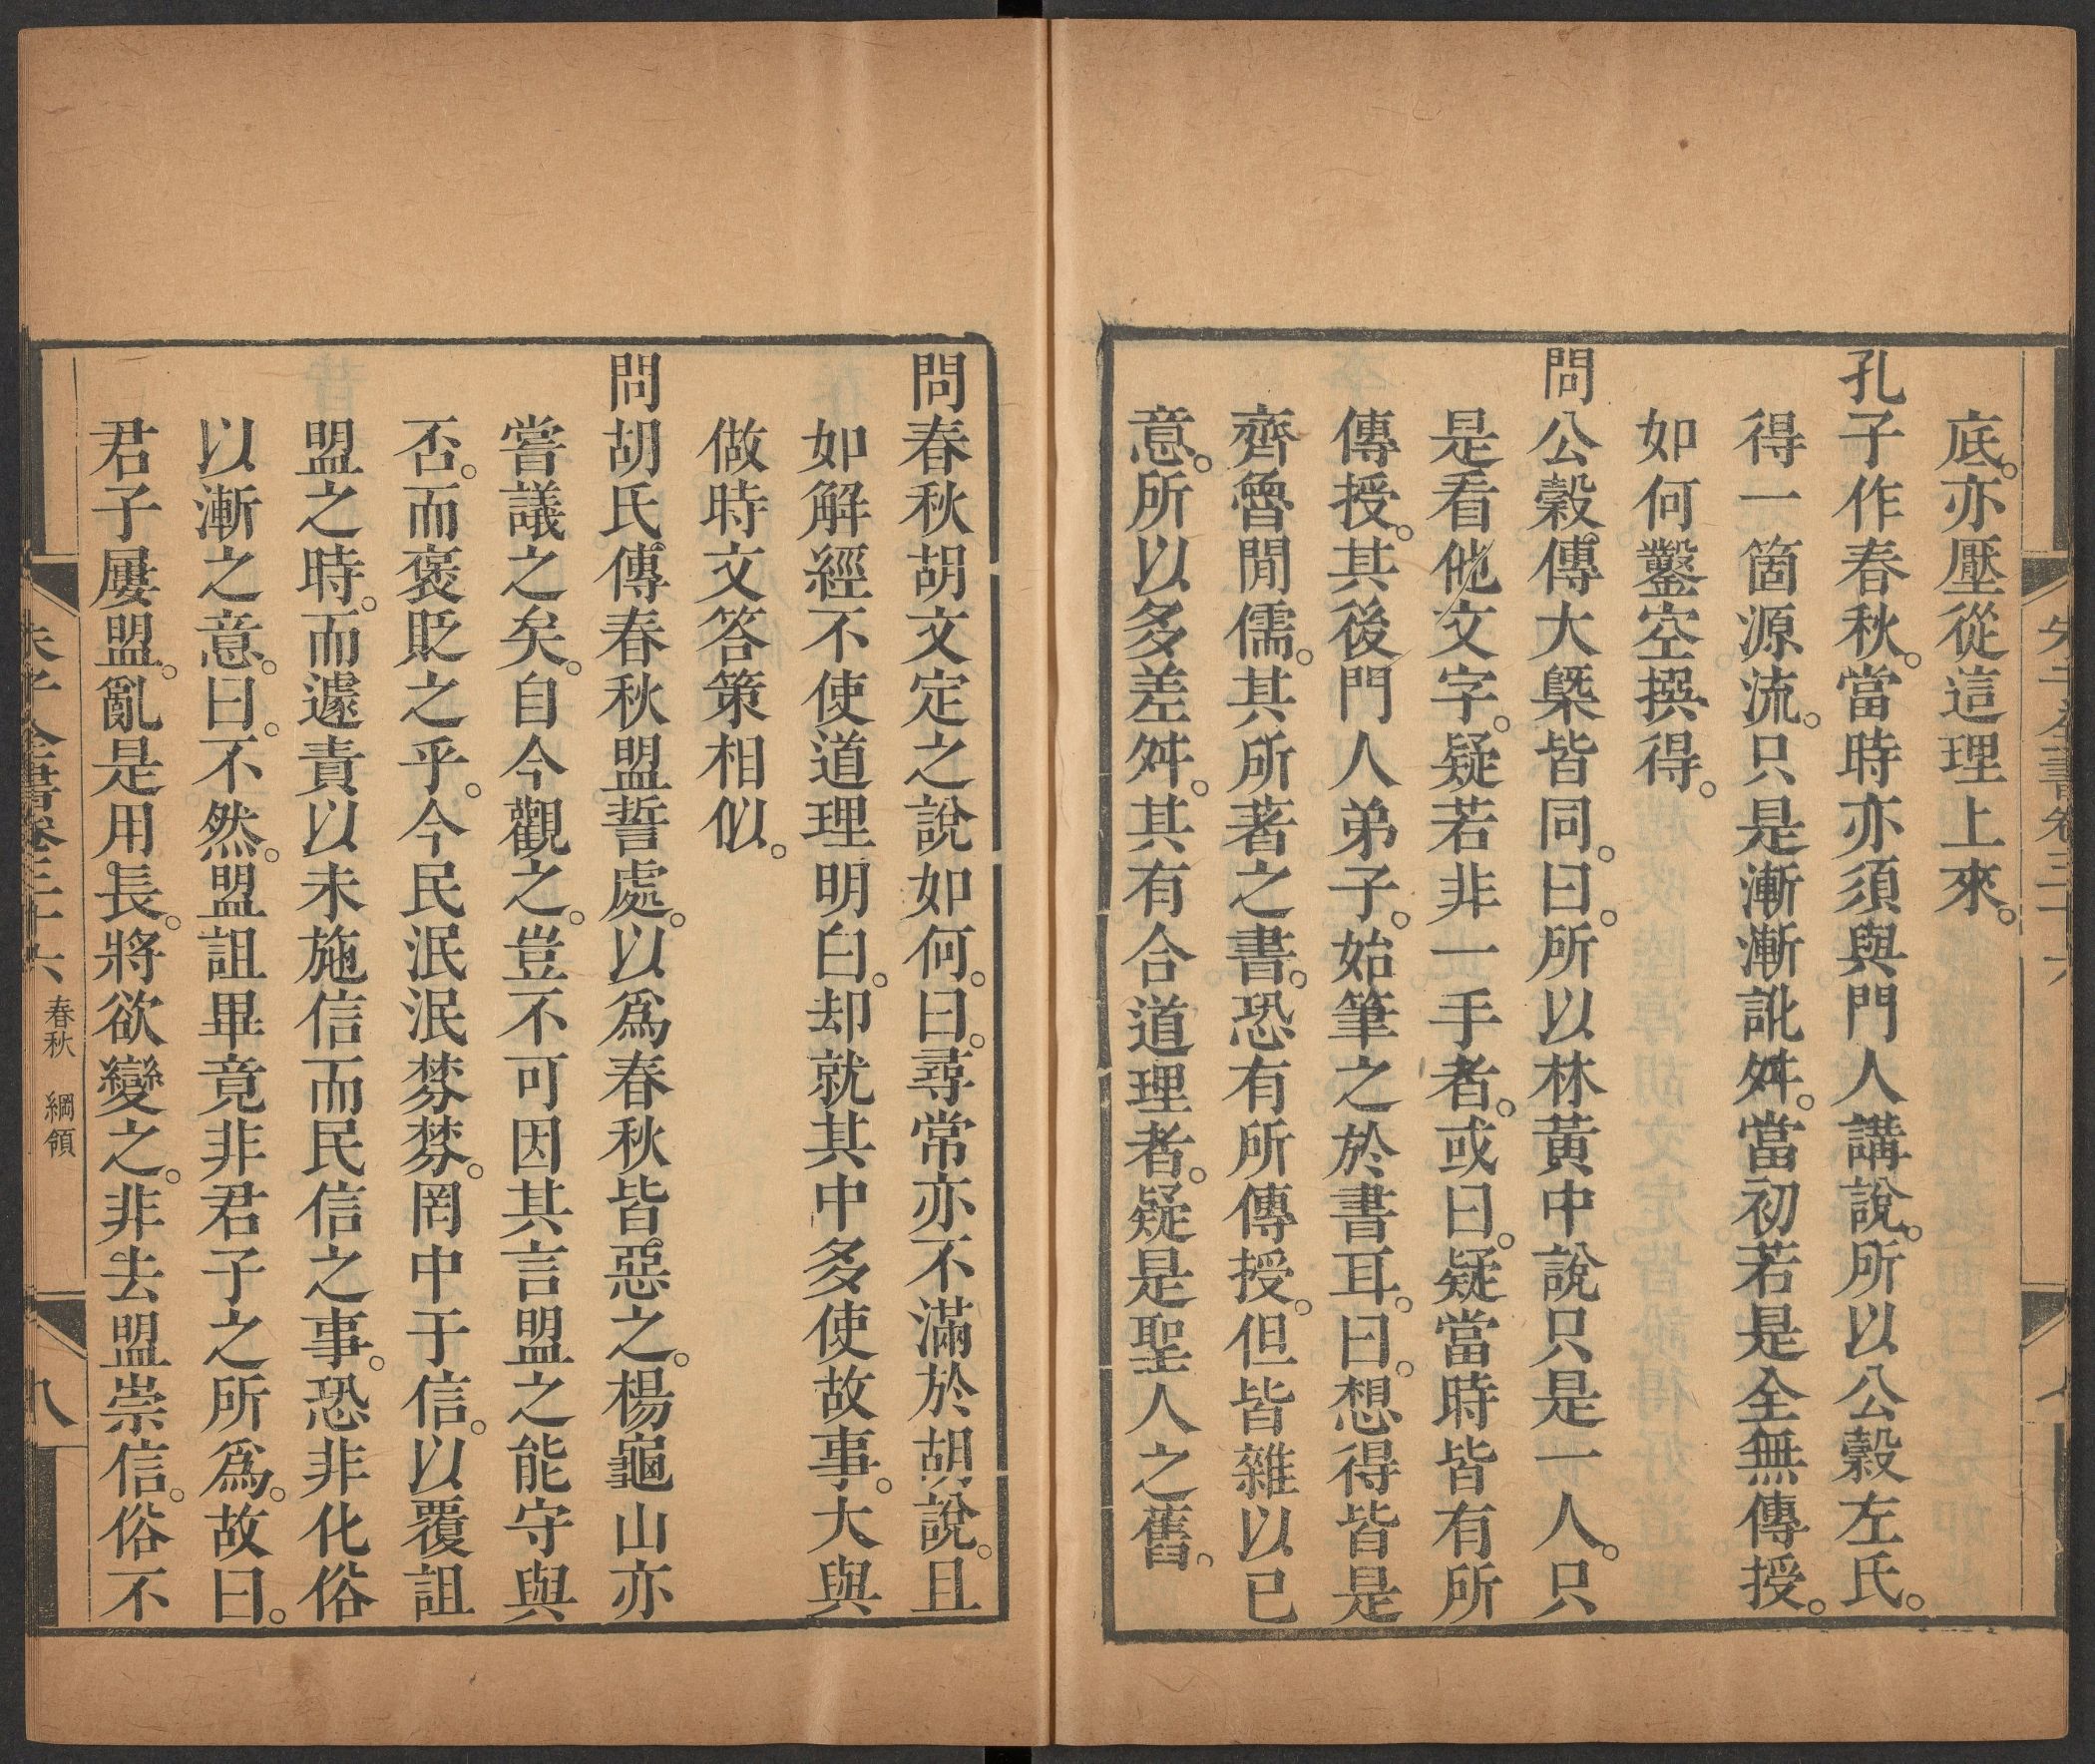 底。亦壓從這理上來。
孔子作春秋。當時亦須與門人講說。所以公穀左氏。
得一箇源流。只是漸漸訛舛。當初若是全無傳授。
如何鑿空撰得。
問公穀傳大槩皆同。曰。所以林黃中說只是一人。只
是看他文字。疑若非一手者。或曰。疑當時皆有所
傳授。其後門人弟子。始筆之於書耳。曰。想得皆是
齊魯閒儒。其所著之書。恐有所傳授。但皆雜以已
意。所以多差舛。其有合道理者。疑是聖人之舊。
問春秋胡文定之說如何。曰。尋常亦不滿於胡說。且
如解經不使道理明白。却就其中多使故事。大與
做時文答策相似。
問胡氏傳春秋盟誓處。以爲春秋皆惡之。楊龜山亦
嘗議之矣。自今觀之。豈不可因其言盟之能守與
否。而褒貶之乎。今民泯泯棼棼。罔中于信。以覆詛
盟之時。而遽責以未施信而民信之事。恐非化俗
以漸之意。曰。不然。盟詛畢竟非君子之所爲。故曰。
君子屢盟。亂是用長。將欲變之。非去盟崇信。俗不
朱子全書卷三十六 春秋 綱領 八